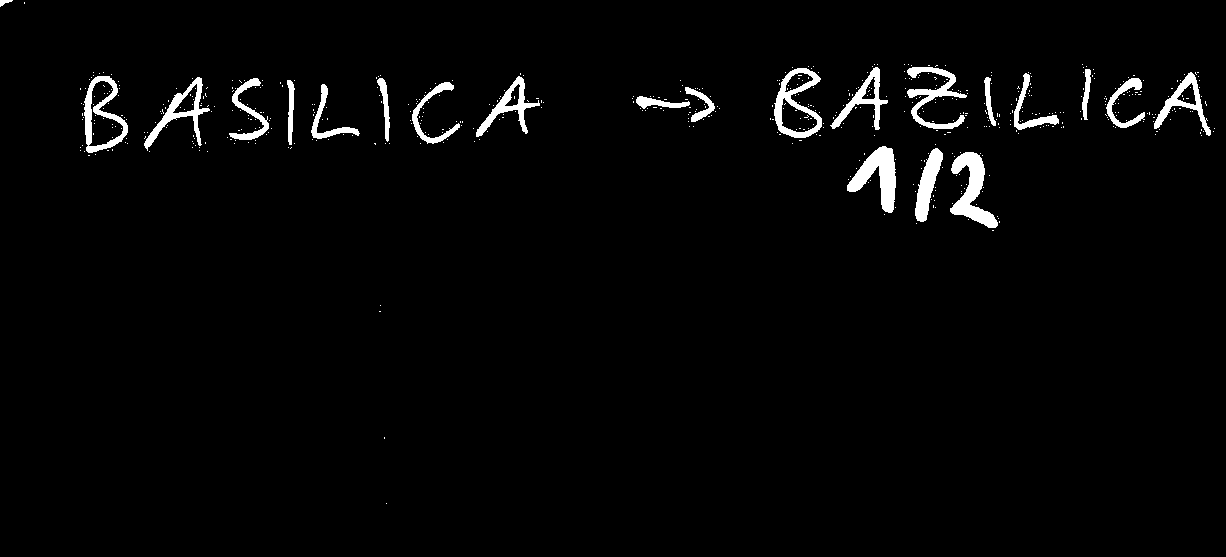 BASILICA → BAZILICA
1/2